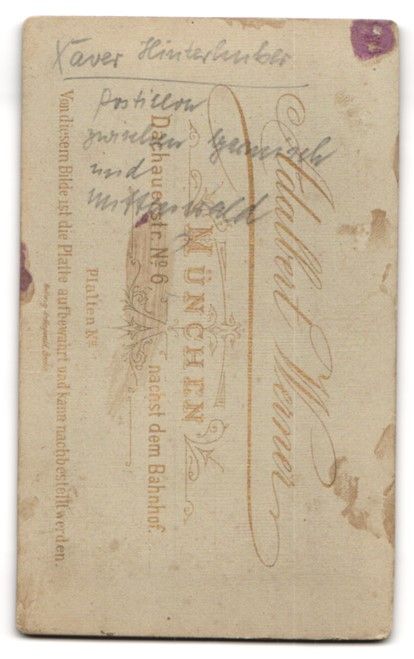 Xaver Hinterhuber
Postillon
zwischen Garmisch
und
Mittenwald
Adalbert Werner
MÜNCHEN
Dachauerstr. Nº 6 nächst dem Bahnhof.
Platten Nº
Von diesem Bilde ist die Platte aufbewahrt und kann nachbestellt werden.